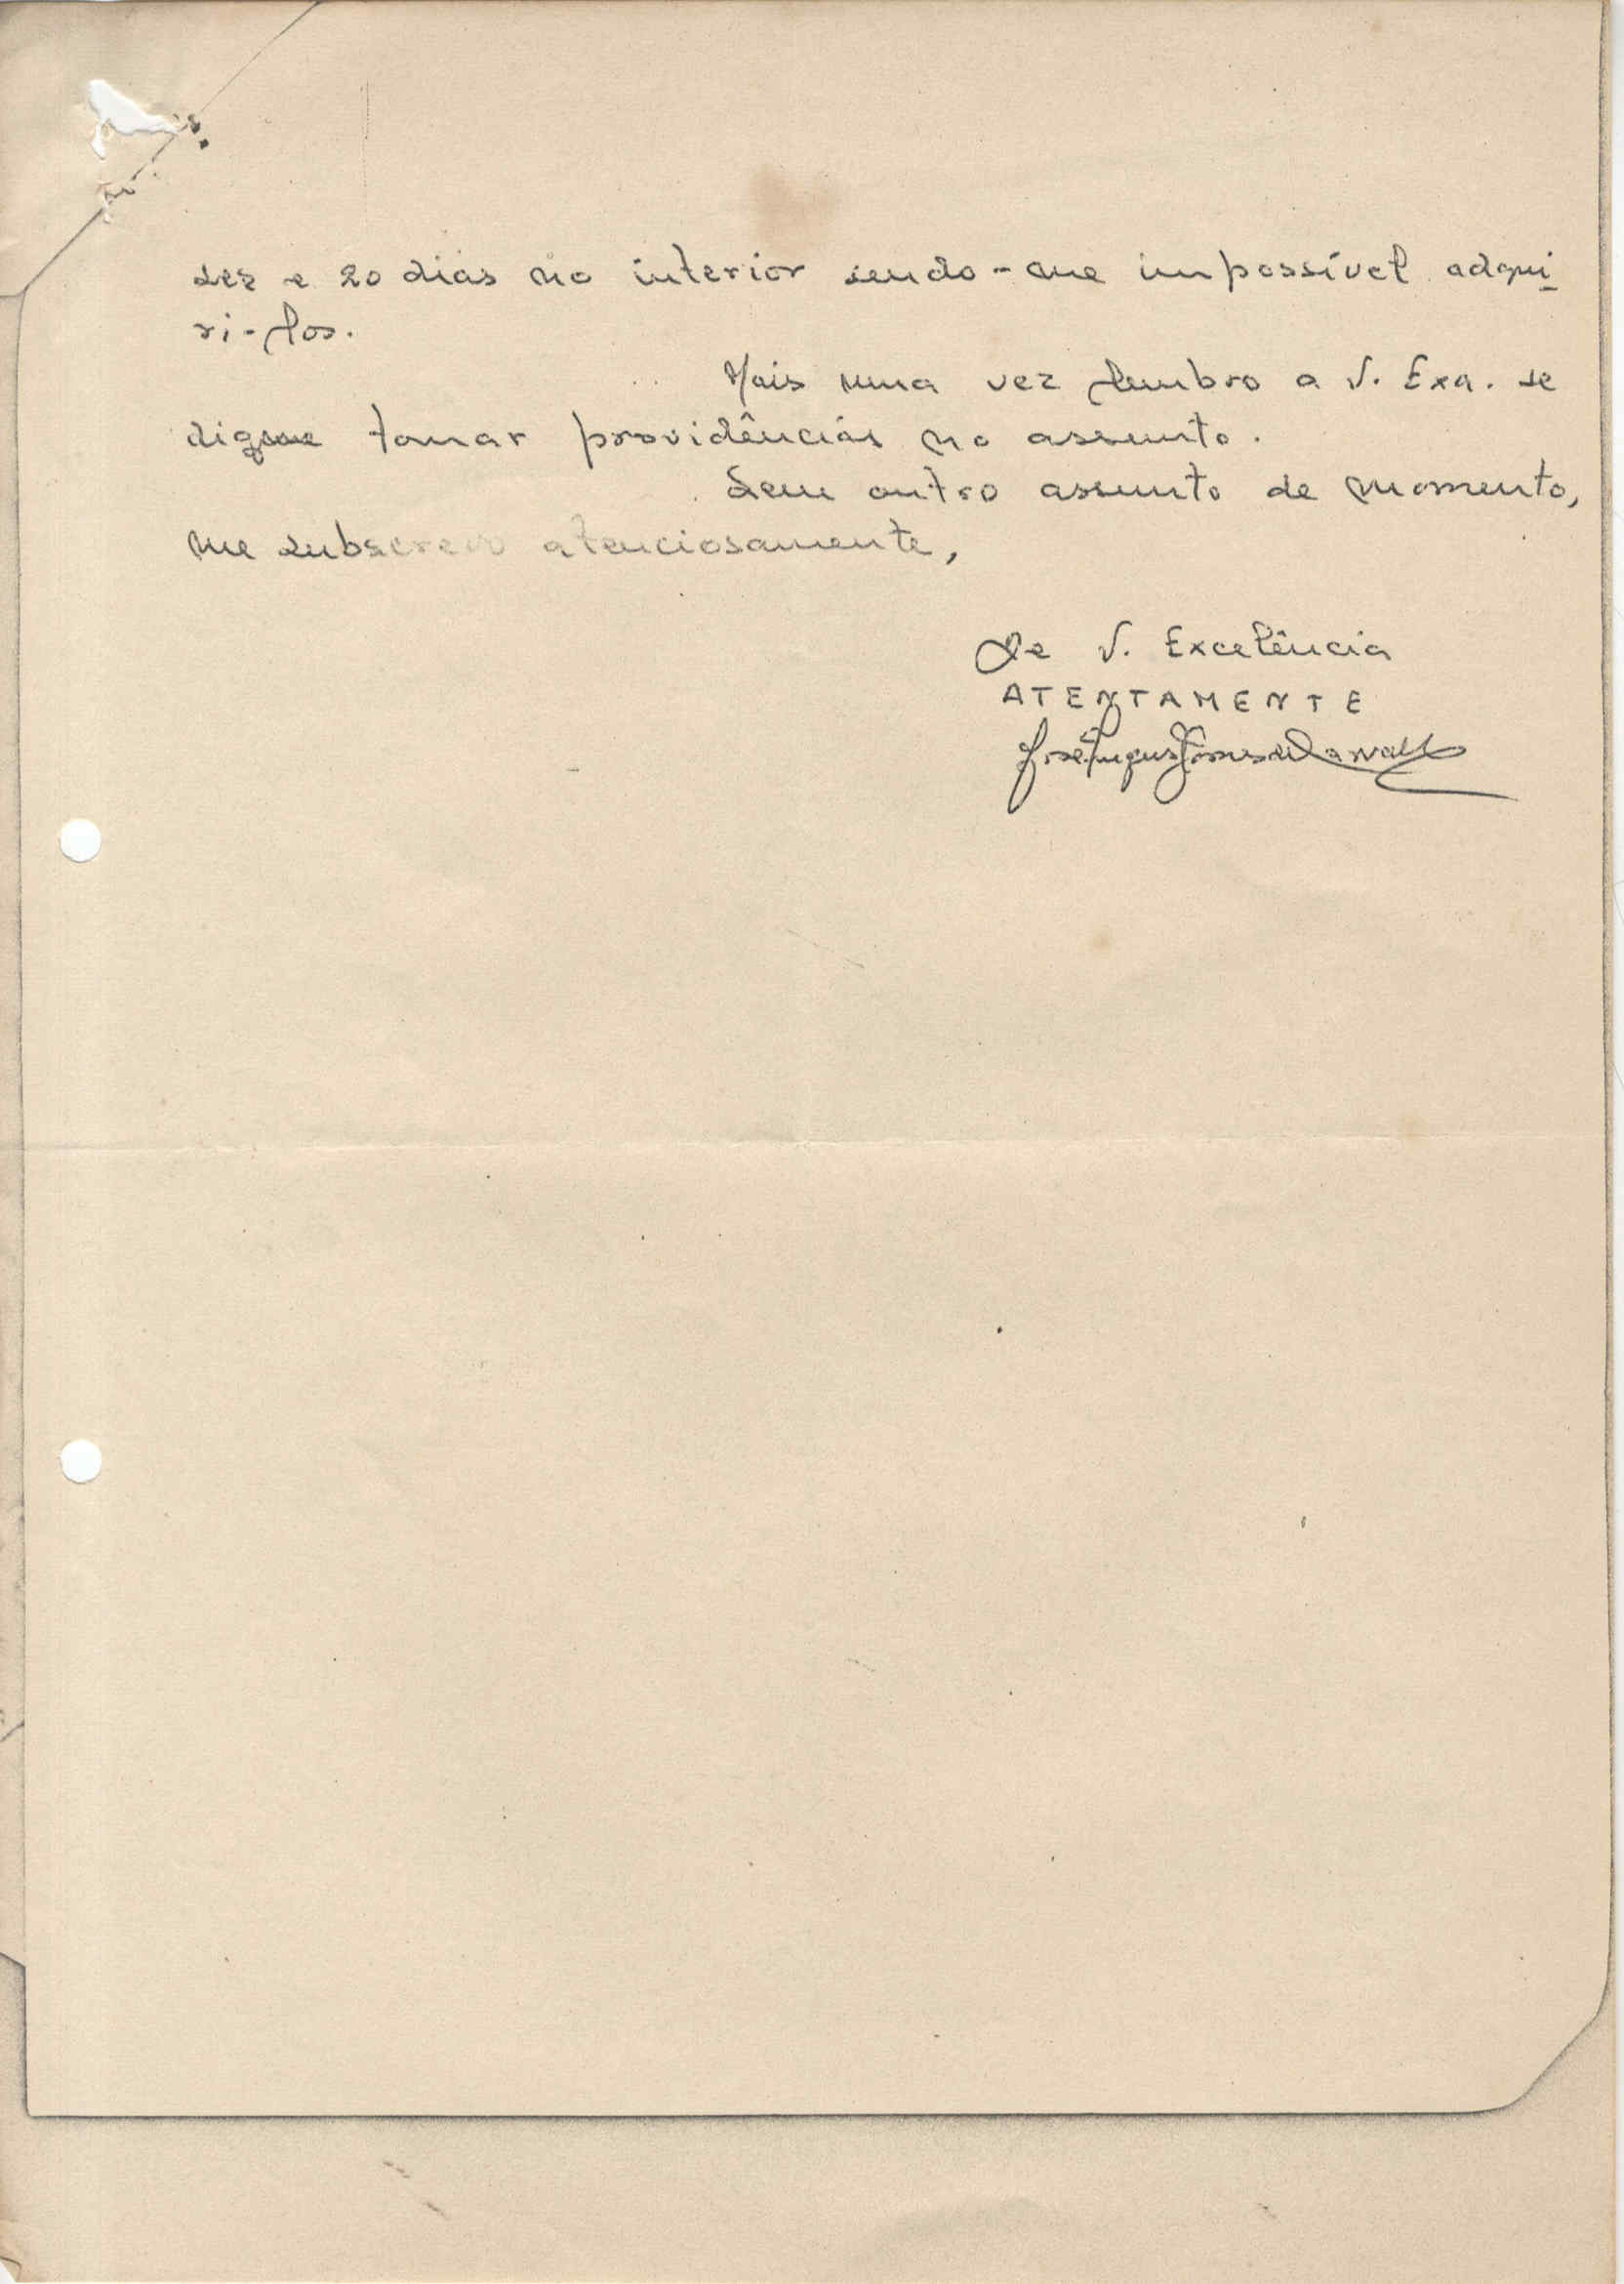 dez e 20 dias no interior sendo-me impossível adqui
ri-los.
Mais uma vez lembro a V. Exa. se
digne tomar providências no assunto.
Sem outro assunto de momento,
me subscrevo atenciosamente,
De V. Excelência
ATENTAMENTE
José